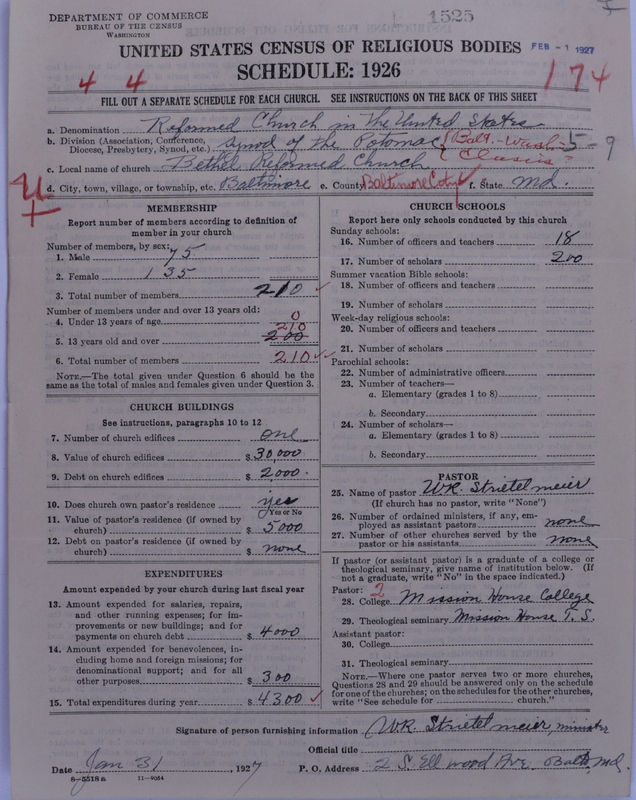 DEPARTMENT OF COMMERCE
BUREAU OF THE CENSUS
WASHINGTON
1525
UNITED STATES CENSUS OF RELIGIOUS BODIES
FEB -1 1927
SCHEDULE: 1926
4 4
174
FILL OUT A SEPARATE SCHEDULE FOR EACH CHURCH. SEE INSTRUCTIONS ON THE BACK OF THIS SHEET
a. Denomination Reformed Church in the United States
b. Division (Association, Conference, Diocese, Presbytery, Synod, etc.) Synod of the Potomac (Balt.-Wash. Classis) 5-9
c. Local name of church Bethel Reformed Church
d. City, town, village, or township, etc. Baltimore e. County Baltimore City f. State Md.
MEMBERSHIP
Report number of members according to definition of
member in your church
Number of members, by sex:
1. Male 75
2. Female 135
3. Total number of members 210
Number of members under and over 13 years old:
4. Under 13 years of age 0
5. 13 years old and over 210 200
6. Total number of members 210
NOTE.—The total given under Question 6 should be
same as the total of males and females given under Question 3.
CHURCH BUILDINGS
See instructions, paragraphs 10 to 12
7. Number of church edifices one
8. Value of church edifices $30,000
9. Debt on church edifices $2,000.
10. Does church own pastor's residence yes
Yes or No
11. Value of pastor's residence (if owned by
church) $5000
12. Debt on pastor's residence (if owned by
church) $none
EXPENDITURES
Amount expended by your church during last fiscal year
13. Amount expended for salaries, repairs,
and other running expenses; for im-
provements or new buildings; and for
payments on church debt $4000
14. Amount expended for benevolences, in-
cluding home and foreign missions; for
denominational support; and for all
other purposes $300
15. Total expenditures during year $4300
CHURCH SCHOOLS
Report here only schools conducted by this church
Sunday schools:
16. Number of officers and teachers 18
17. Number of scholars 200
Summer vacation Bible schools:
18. Number of officers and teachers
19. Number of scholars
Week-day religious schools:
20. Number of officers and teachers
21. Number of scholars
Parochial schools:
22. Number of administrative officers
23. Number of teachers—
a. Elementary (grades 1 to 8)
b. Secondary
24. Number of scholars—
a. Elementary (grades 1 to 8)
b. Secondary
PASTOR
25. Name of pastor W.R. Strietelmeier
(If church has no pastor, write "None")
26. Number of ordained ministers, if any, em-
ployed as assistant pastors none
27. Number of other churches served by the
pastor or his assistants none
If pastor (or assistant pastor) is a graduate of a college or
theological seminary, give name of institution below. (If
not a graduate, write "No" in the space indicated.)
Pastor: 2
28. College Mission House College
29. Theological seminary Mission House T. S.
Assistant pastor:
30. College
31. Theological seminary
NOTE.—Where one pastor serves two or more churches,
Questions 28 and 29 should be answered only on the schedule
for one of the churches; on the schedules for the other churches,
write "See schedule for church."
Signature of person furnishing information W.R. Strietelmeier, minister
Official title
Date Jan 31, 1927 P. O. Address 2 S. Ellwood Ave. Balto. Md.
8-5518a 11-9064